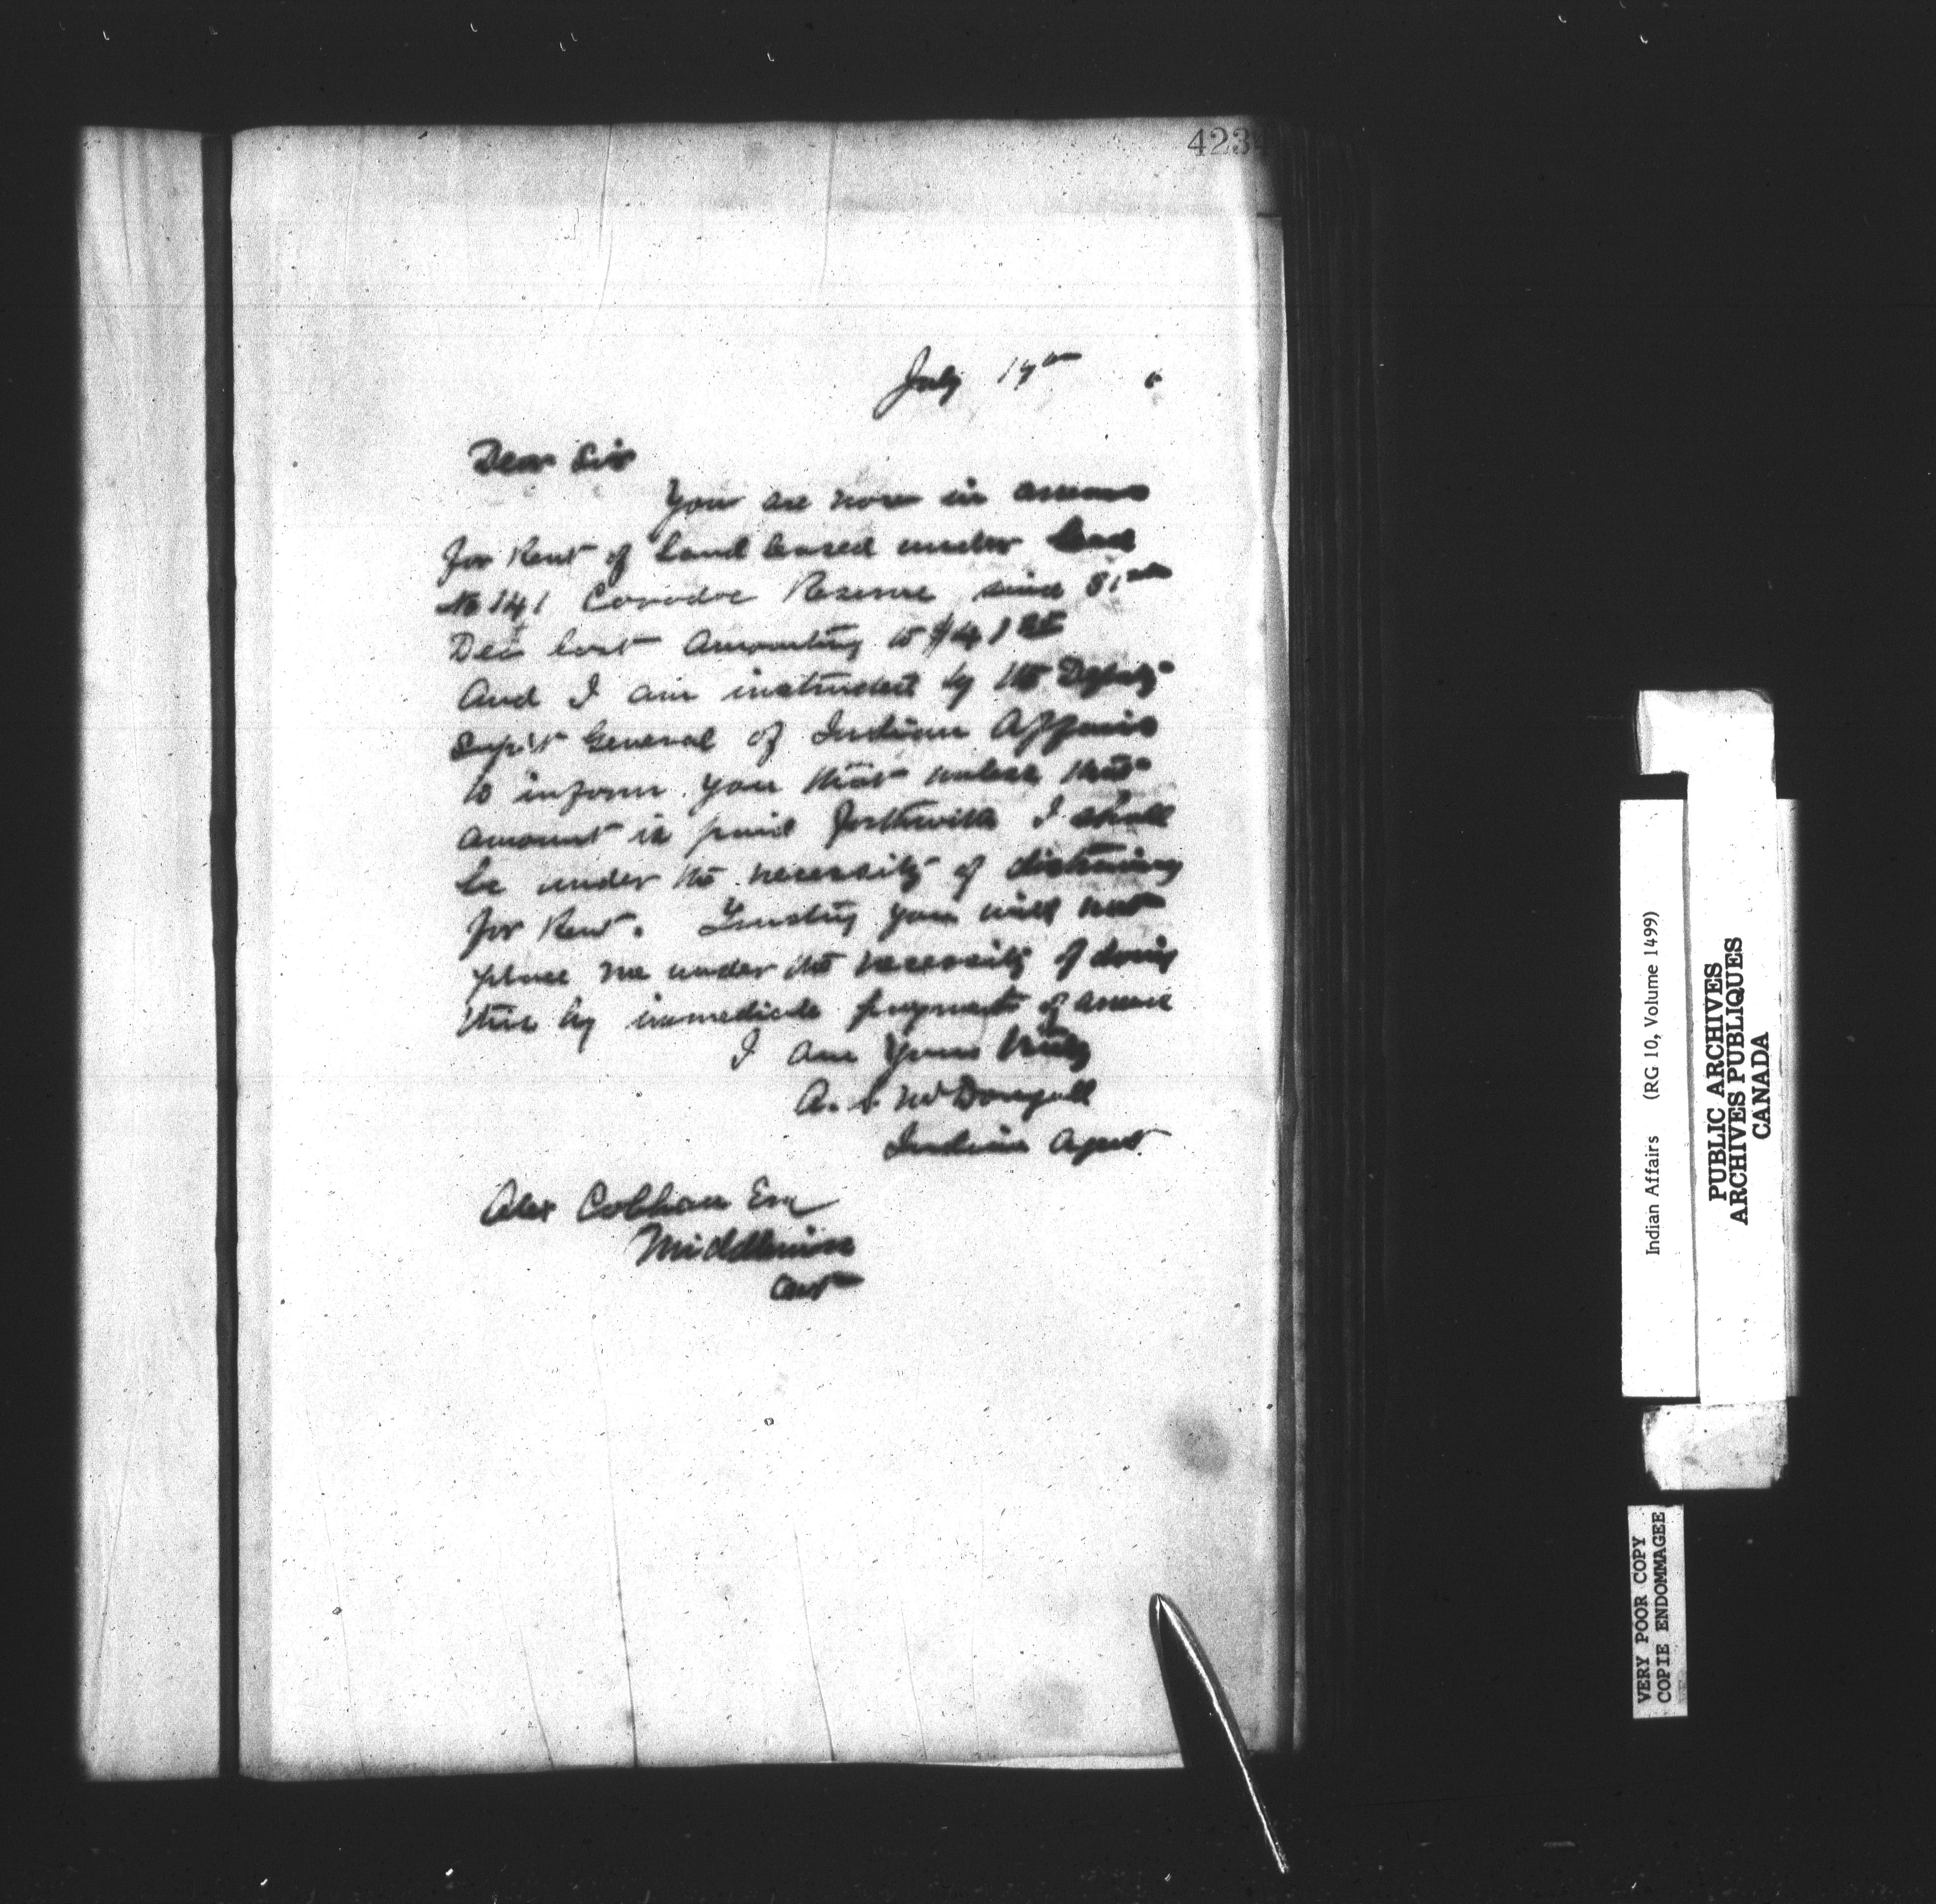 423
July 17th 6
Dear Sir
You are now in arrears
for Rent of Land leased under Lease
No 141 Caradoc Reserve since 31st
Dec last Amounting to $41
And I am instructed by the Deputy
Supt General of Indian Affairs
to inform you that unless that
amount is paid forthwith I shall
be under the necessity of distraining
for Rent. Trusting you will not
place me under the necessity of doing
this by immediate payment of arrears
I am Yours truly
A. S McDougall
Indian Agent.
Alex Cobban Esq
Middlemiss
Ont
Indian Affairs (RG 10, Volume 1499)
PUBLIC ARCHIVES
ARCHIVES PUBLIQUES
CANADA
VERY POOR COPY
COPIE ENDOMMAGEE